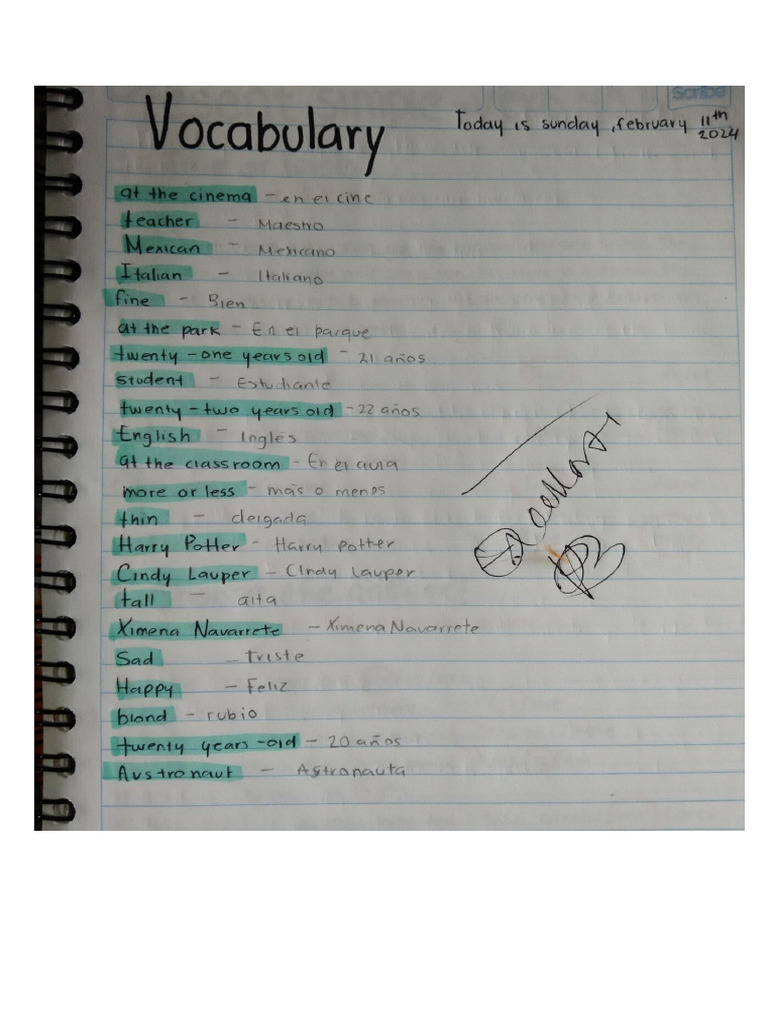 Scribe
Vocabulary
Today is sunday, february 11th 2024
at the cinema - en el cine
teacher - Maestro
Mexican - Mexicano
Italian - Italiano
fine - Bien
at the park - En el parque
twenty-one years old - 21 años
student - Estudiante
twenty-two years old - 22 años
English - Ingles
at the classroom - En el aula
more or less - mas o menos
thin - delgada
Harry Potter - Harry potter
Cindy Lauper - Cindy Lauper
tall - alta
Ximena Navarrete - Ximena Navarrete
Sad - Triste
Happy - Feliz
blond - rubio
twenty years-old - 20 años
Avstronaut - Astronauta